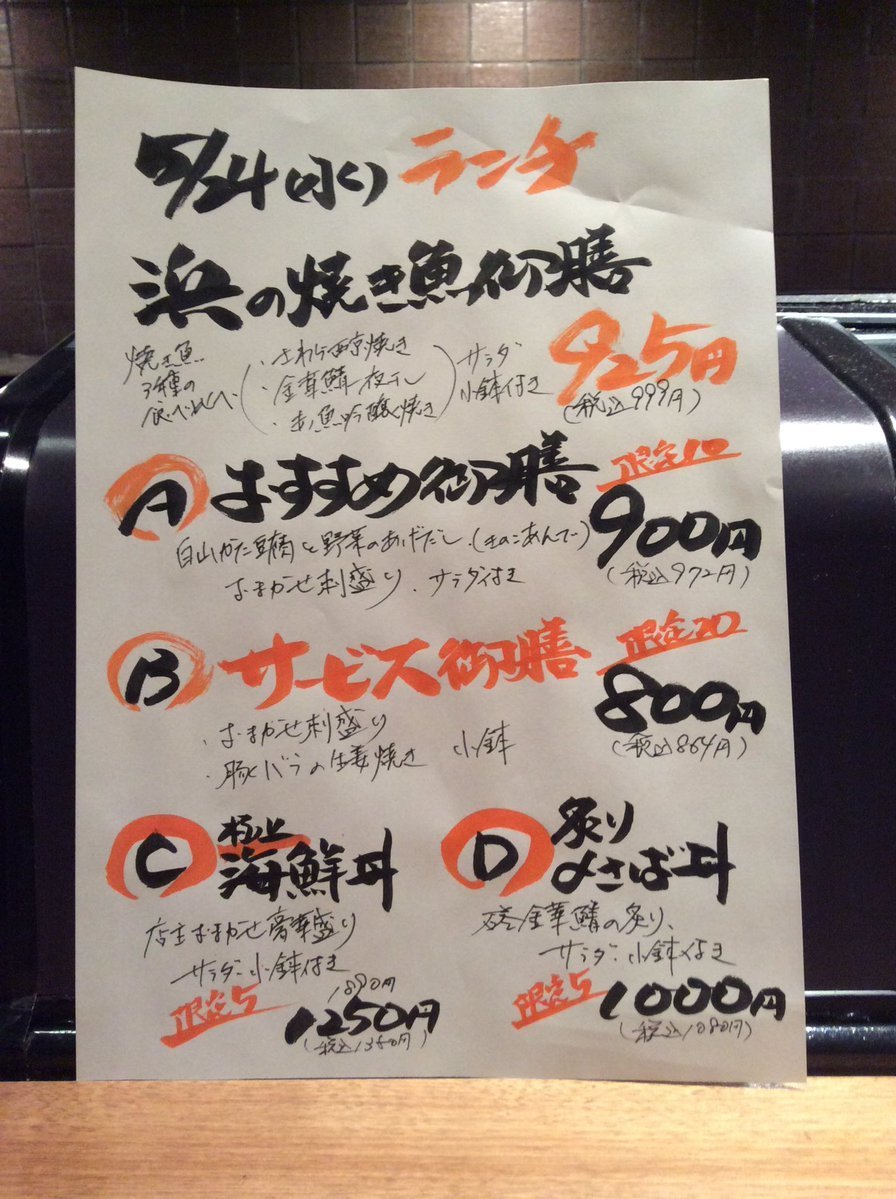 5/24(水)ランチ
浜の焼き魚御膳
焼き魚
3種の
食べ比べ
・さわら西京焼き
・金華鯖一夜干し
・赤魚吟醸焼き
サラダ
小鉢付き
925円
(税込999円)
A おすすめ御膳
限定10
900円
(税込972円)
白山かた豆腐と野菜のあげだし(きのこあんで)
おまかせ刺盛り、サラダ付き
B サービス御膳
限定20
800円
(税込864円)
・おまかせ刺盛り
・豚バラの生姜焼き 小鉢
C 極上
海鮮丼
店主おまかせ豪華盛り
サラダ・小鉢付き
限定5
1250円
(税込1350円)
D 炙り
〆さば丼
金華鯖の炙り、
サラダ・小鉢付き
限定5
1000円
(税込1080円)